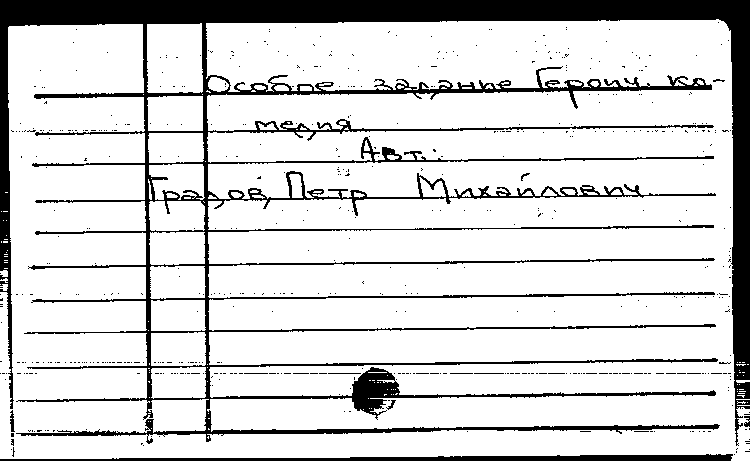 Особое заданье Героич. ко-
медия
Авт.:
Градов, Петр Михайлович.